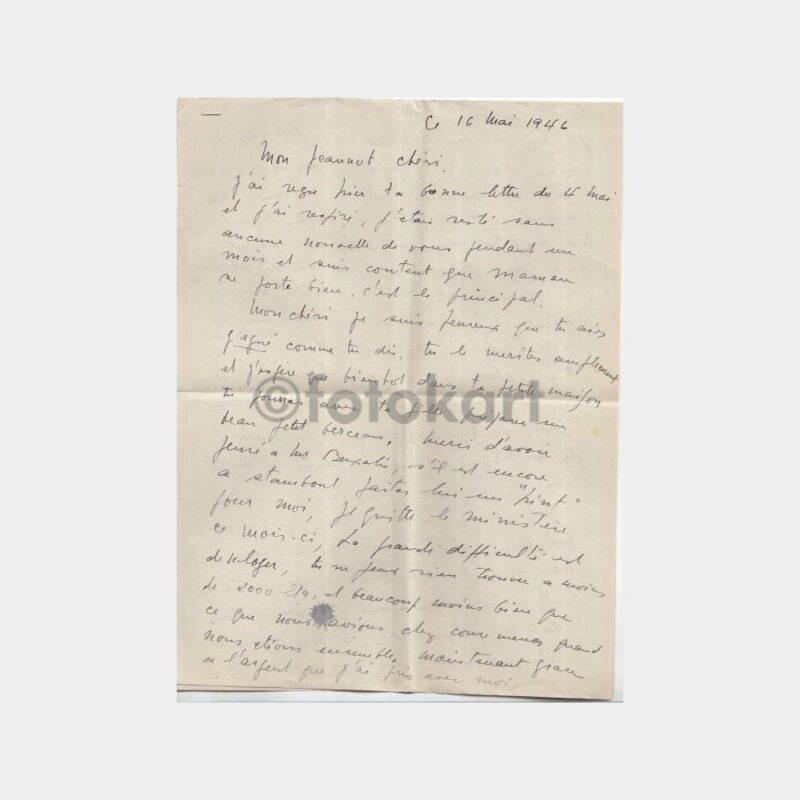 Ce 16 mai 1946
Mon Jeannot chéri,
J'ai reçu hier ta bonne lettre du 4 mai
et j'ai respiré, j'étais resté sans
aucune nouvelle de vous pendant un
mois et suis content que maman
se porte bien. c'est le principal.
Mon chéri je suis heureux que tu aies
gagné comme tu dis, tu le merites amplement
et j'espère que bientot dans ta petite maison
tu pourras avec ta fille préparer un
beau petit berceau, merci d'avoir
pensé a Mr s'il est encore
a stamboul faites lui un "hint"
pour moi, Je quitte le ministère
ce mois-ci, La grande difficulté est
de se loger, tu ne peux rien trouver a moins
de 2000 et beaucoup moins bien que
ce que nous avions chez quand
nous etions ensemble, maintenant grace
a l'argent que j'ai pris avec moi,
©fotokart